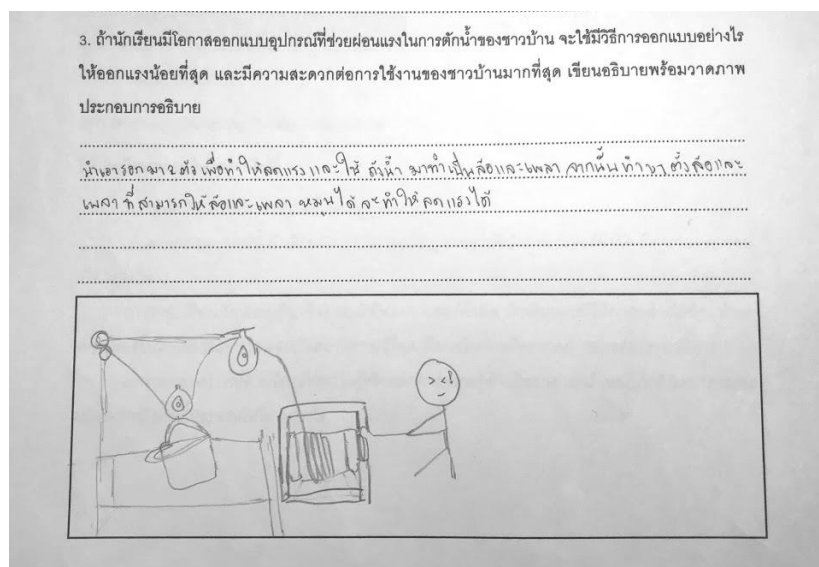 3. ถ้านักเรียนมีโอกาสออกแบบอุปกรณ์ที่ช่วยผ่อนแรงในการตักน้ำของชาวบ้าน จะใช้มีวิธีการออกแบบอย่างไร
ให้ออกแรงน้อยที่สุด และมีความสะดวกต่อการใช้งานของชาวบ้านมากที่สุด เขียนอธิบายพร้อมวาดภาพ
ประกอบการอธิบาย
นำเอารอกมา 2 ตัว เพื่อทำให้ลดแรง และใช้ ถังน้ำ มาทำเป็นล้อและเพลา จากนั้นทำขาตั้งล้อและ
เพลา ที่สามารถให้ล้อและเพลา หมุนได้ จะทำให้ลดแรงได้